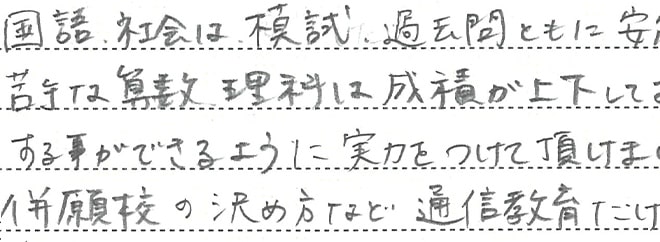 国語、社会は、模試、過去問ともに安
苦手な算数、理科は成績が上下して
する事ができるように実力をつけて頂けま
併願校の決め方など、通信教育だけ